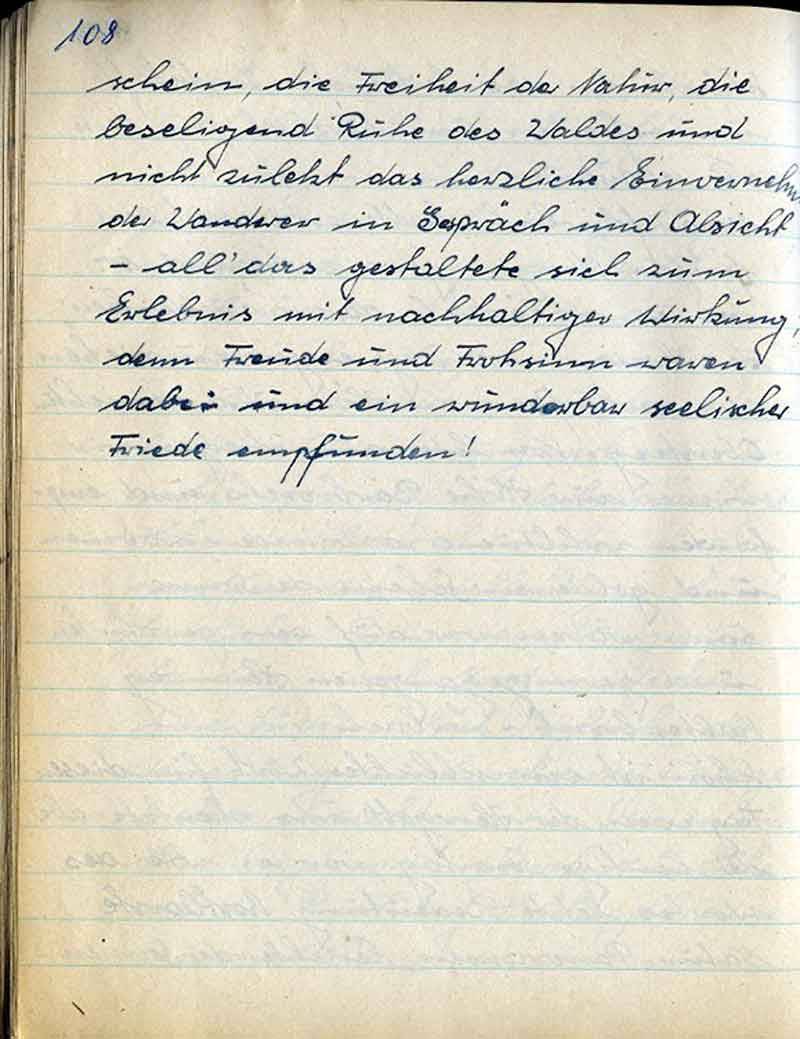 108
schein, die Freiheit der Natur, die
beseligend Ruhe des Waldes und
nicht zuletzt das herzliche Einvernehm
der Wanderer in Gespräch und Absicht
– all' das gestaltete sich zum
Erlebnis mit nachhaltiger Wirkung,
denn Freude und Frohsinn waren
dabei und ein wunderbar seelischer
Friede empfunden!